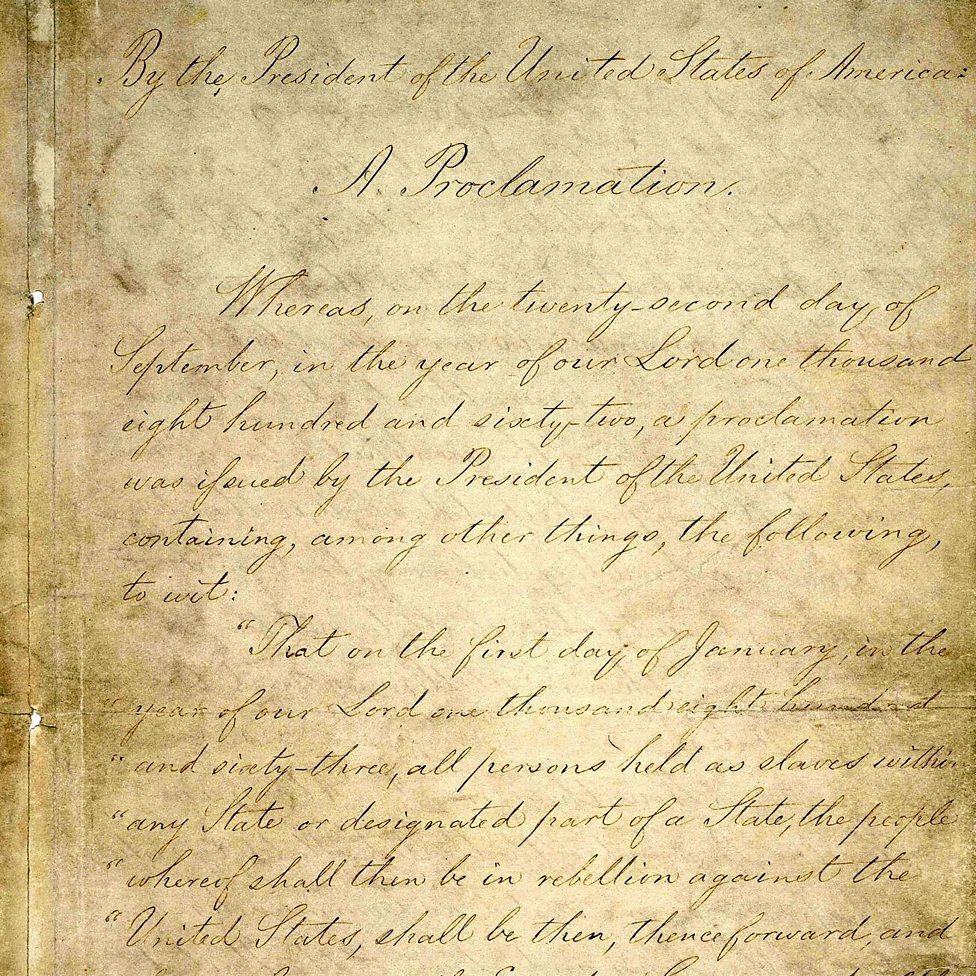 By the President of the United States of America:
A Proclamation.
Whereas, on the twenty-second day of
September, in the year of our Lord one thousand
eight hundred and sixty-two, a proclamation
was issued by the President of the United States,
containing, among other things, the following,
to wit:
"That on the first day of January, in the
"year of our Lord one thousand eight hundred
"and sixty-three, all persons held as slaves within
"any State or designated part of a State, the people
"whereof shall then be in rebellion against the
"United States, shall be then, thenceforward, and